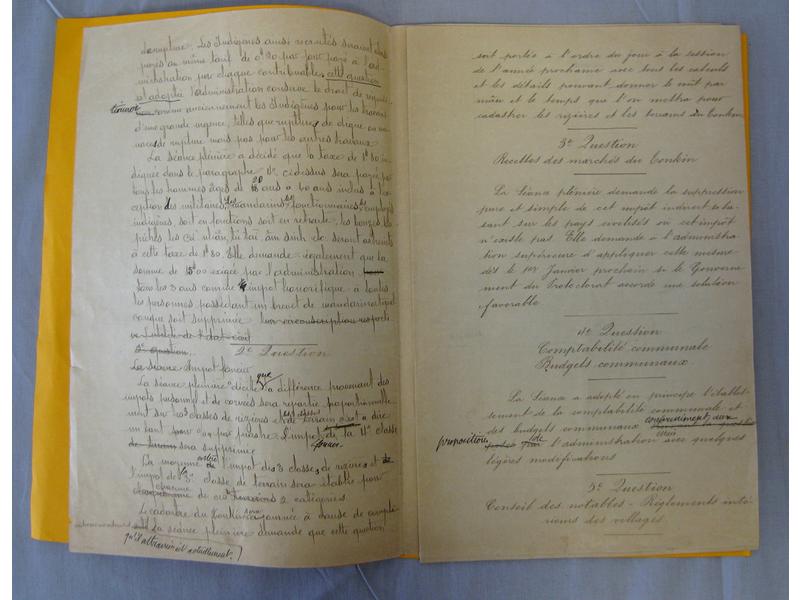 rupture. Les Indigènes ainsi recrutés seraient
payés au même tarif de 0$20 par jour payé à l'ad-
ministration par chaque contribuable, cette question
est adoptée l'administration conserve le droit de
comme anciennement les Indigènes pour les travaux
d'une grande urgence, telles que ruptures de digue ou me-
naces de rupture mais pas pour les autres travaux.
La séance plénière a décidé que la taxe de 1$80 in-
diquée dans le paragraphe ci-dessus sera payée par
tous les hommes âgés de 20 ans à 60 ans inclus à l'ex-
ception des militaires, les mandarins, fonctionnaires, employés
indigènes soit en fonctions soit en retraite, les bonzes, les
à cette taxe de 1$80. Elle demande également que la
somme de exigée par l'administration
tous les 3 ans comme impôt honorifique à toutes
les personnes possédant un brevet de mandarinat
conque soit supprimée.
2e Question
La séance plénière décide que la différence provenant des
impôts personnels et de corvées sera répartie proportionnelle-
ment sur classes de rizières et de terrain c'est à dire
un tant pour % par piastre. L'impôt foncier de la 4e classe
sera supprimé.
La moyenne entre l'impôt des 3 classes de rizières et
l'impôt de la 3e classe de terrain sera établie pour
chacune de ces 2 catégories.
Le cadastre du Tonkin sera ajourné à cause de
La séance plénière demande que cette question
soit portée à l'ordre du jour à la session
de l'année prochaine avec tous les calculs
et les détails pouvant donner le coût par
mẫu et le temps que l'on mettra pour
cadastrer les rizières et les terrains du Tonkin
3e Question
Recettes des marchés du Tonkin
La Séance plénière demande la suppression
pure et simple de cet impôt indirect se ba-
sant sur les pays civilisés où cet impôt
n'existe pas. Elle demande à l'administra-
tion supérieure d'appliquer cette mesure
dès le 1er Janvier prochain si le Gouverne-
ment du Protectorat accorde une solution
favorable
4e Question
Comptabilité communale
Budgets communaux
La Séance a adopté en principe l'établis-
sement de la comptabilité communale et
des budgets communaux conformément aux
propositions de l'administration avec quelques
légères modifications
5e Question
Conseil des notables - Règlements inté-
rieurs des villages.